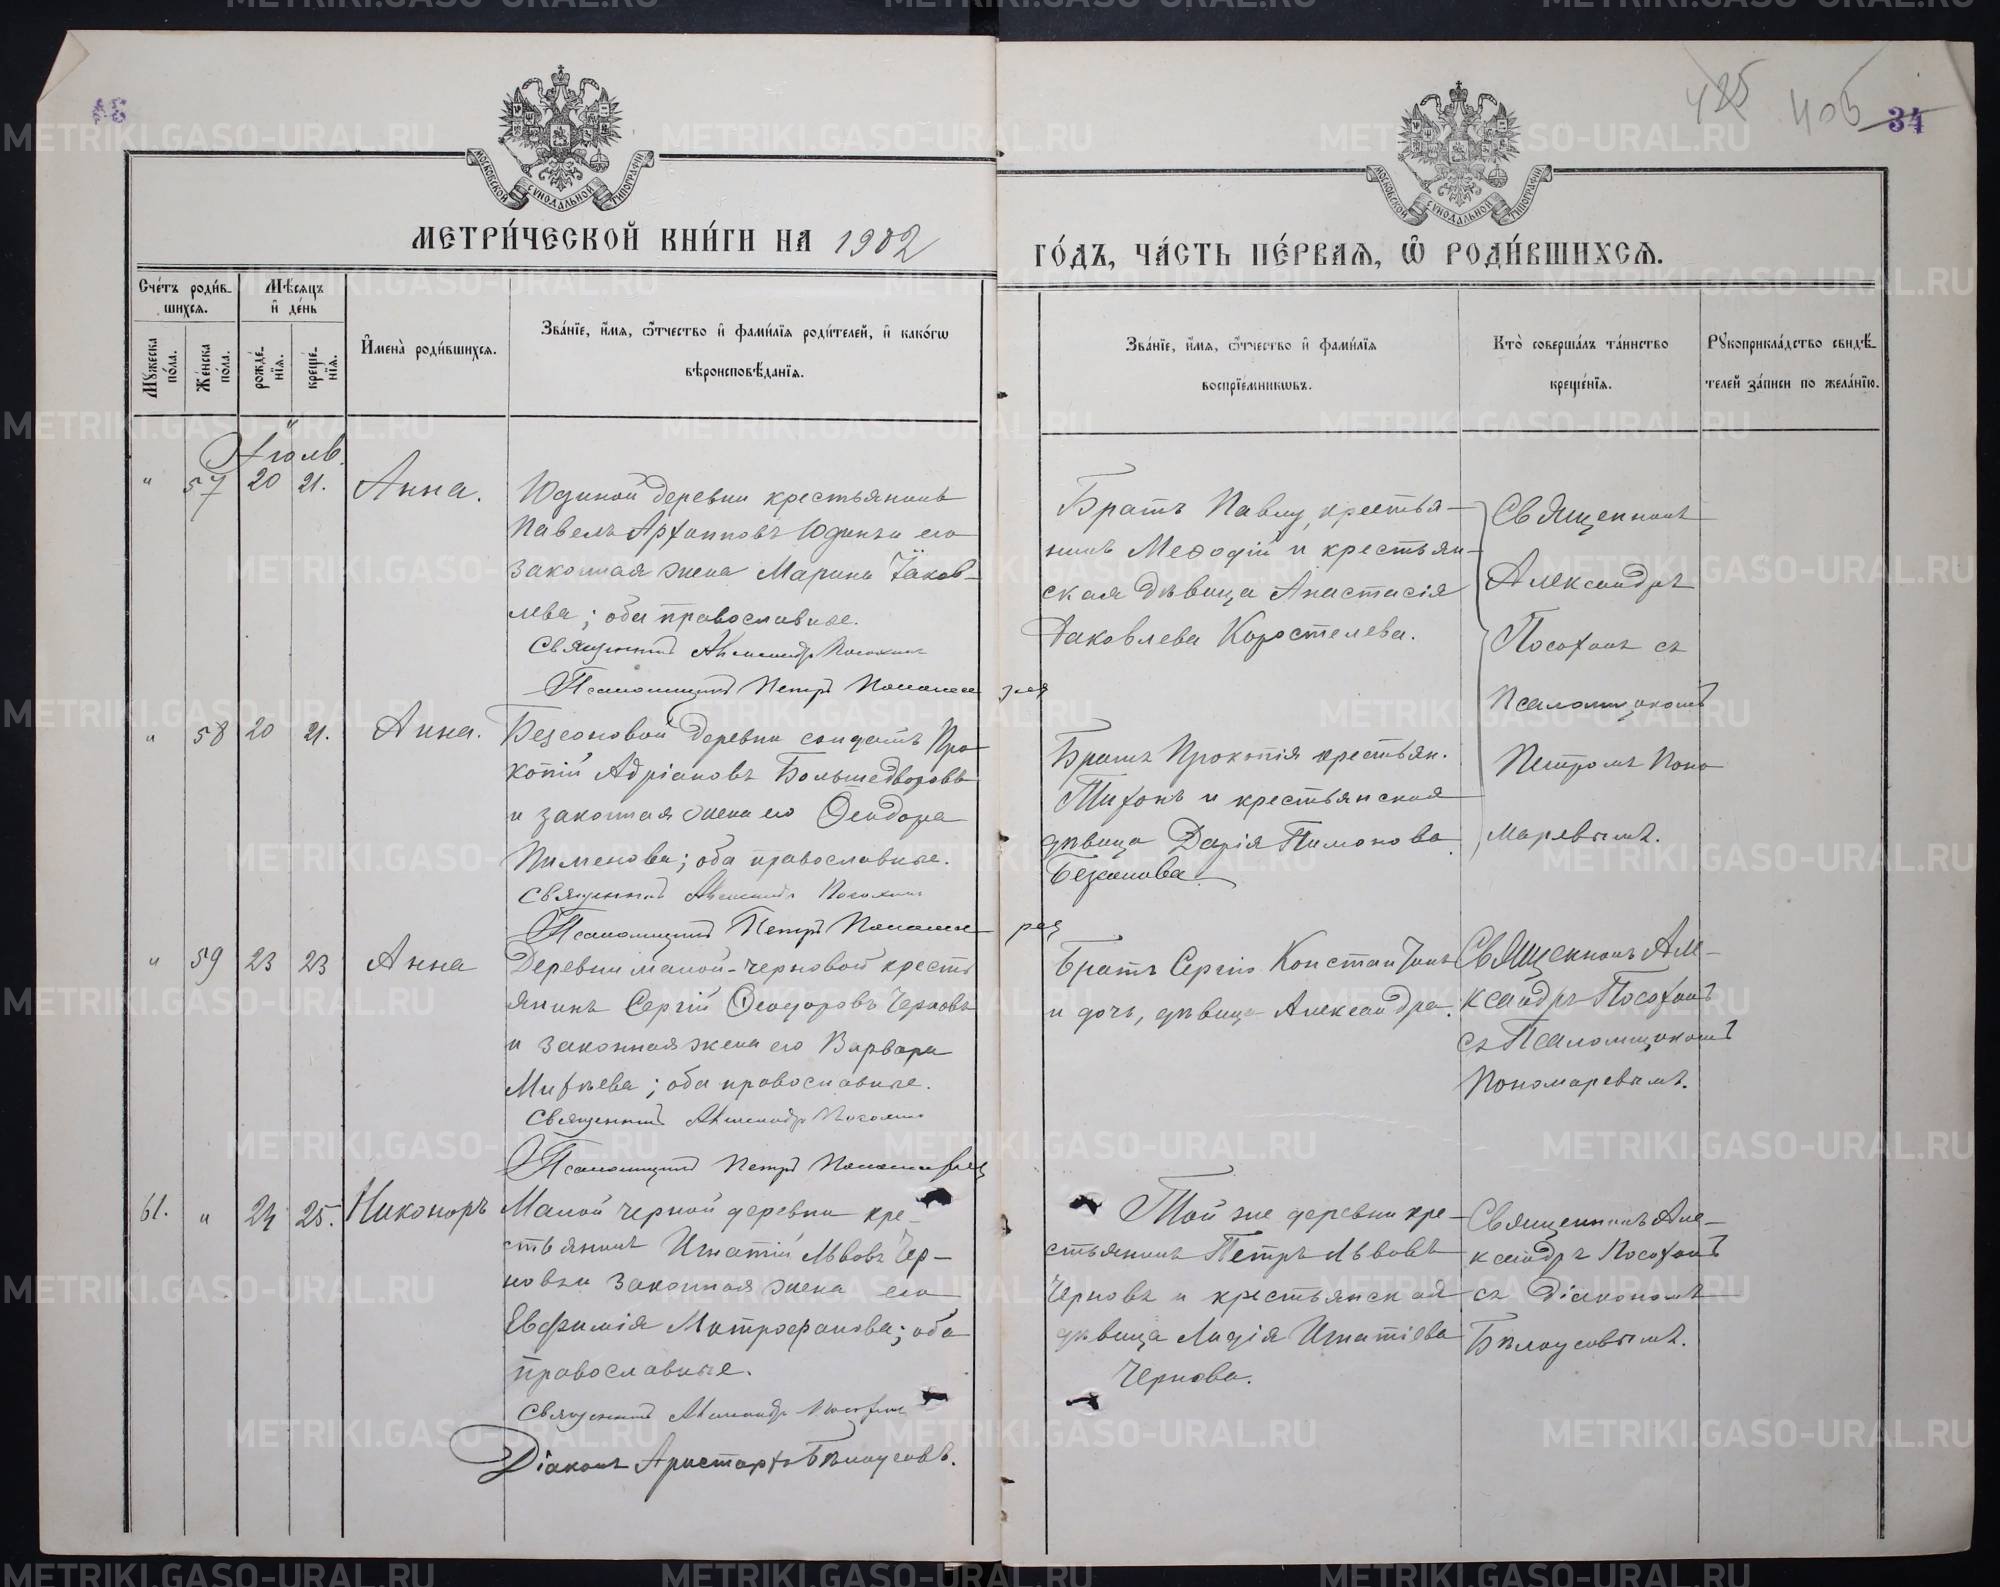 34
425 406 34
МОСКОВСКОЙ СУНОДАЛЬНОЙ ТИПОГРАФІИ
МОСКОВСКОЙ СУНОДАЛЬНОЙ ТИПОГРАФІИ
МЕТРИ́ЧЕСКОЙ КНИ́ГИ НА 1902
ГО́ДЪ, ЧА́СТЬ ПЕ́РВАЯ, Ѡ҆ РОДИ́ВШИХСЯ.
Сче́тъ роди́в-
шихся.
Мѣ́сяцъ
и҆ де́нь
Мꙋ́жеска по́ла.
Же́нска по́ла.
рожде́-
нїя.
креще́-
нїя.
И҆мена̀ роди́вшихся.
Зва́нїе, и҆́мя, ѻ҆́тчество и҆ фами́лїя роди́телей, и҆ како́гѡ
вѣроисповѣ́данїя.
Зва́нїе, и҆́мя, ѻ҆́тчество и҆ фами́лїя
воспрїе́мникѡвъ.
Кто̀ соверша́лъ та́инство
креще́нїя.
Рꙋкоприкла́дство свидѣ́-
телей за́писи по жела́нїю.
Іюль.
" 57 20 21. Анна.
Юдиной деревни крестьянинъ
Павелъ Архиповъ Юдинъ и его
законная жена Марина Іаков-
лева; оба православные.
Священникъ Александръ Посохинъ
Псаломщикъ Петръ Пономарев
Братъ Павлу, крестья-
нинъ Меѳодій и крестьян-
ская дѣвица Анастасія
Іаковлева Коростелева.
Священникъ
Александръ
Посохинъ съ
Псаломщикомъ
Петромъ Поно
маревымъ.
" 58 20 21. Анна.
Безсоновой деревни солдатъ Про-
копій Адріановъ Большедворовъ
и законная жена его Ѳеодора
Пименова; оба православные.
Священникъ Александръ Посохинъ
Псаломщикъ Петръ Пономарев
Братъ Прокопія крестьян.
Тихонъ и крестьянская
дѣвица Дарія Пимонова
Безсонова
" 59 23 23 Анна
Деревни малой-черновой кресть
янинъ Сергій Ѳеодоровъ Черновъ
и законная жена его Варвара
Михѣева; оба православные.
Священникъ Александръ Посохинъ
Псаломщикъ Петръ Пономарев
Братъ Сергію Константинъ
и дочь, дѣвица Александра.
Священникъ Але-
ксандръ Посохинъ
съ Псаломщикомъ
Пономаревымъ.
61. " 24 25. Никоноръ
Малой черной деревни кре-
стьянинъ Игнатій Львовъ Чер-
новъ и законная жена его
Евфимія Митрофанова; оба
православные.
Священникъ Александръ Посохинъ
Діаконъ Аристархъ Бѣлоусовъ.
Той же деревни кре-
стьянинъ Петръ Львовъ
Черновъ и крестьянская
дѣвица Лидія Игнатіева
Чернова.
Священникъ Але-
ксандръ Посохинъ
съ Діакономъ
Бѣлоусовымъ.
METRIKI.GASO-URAL.RU